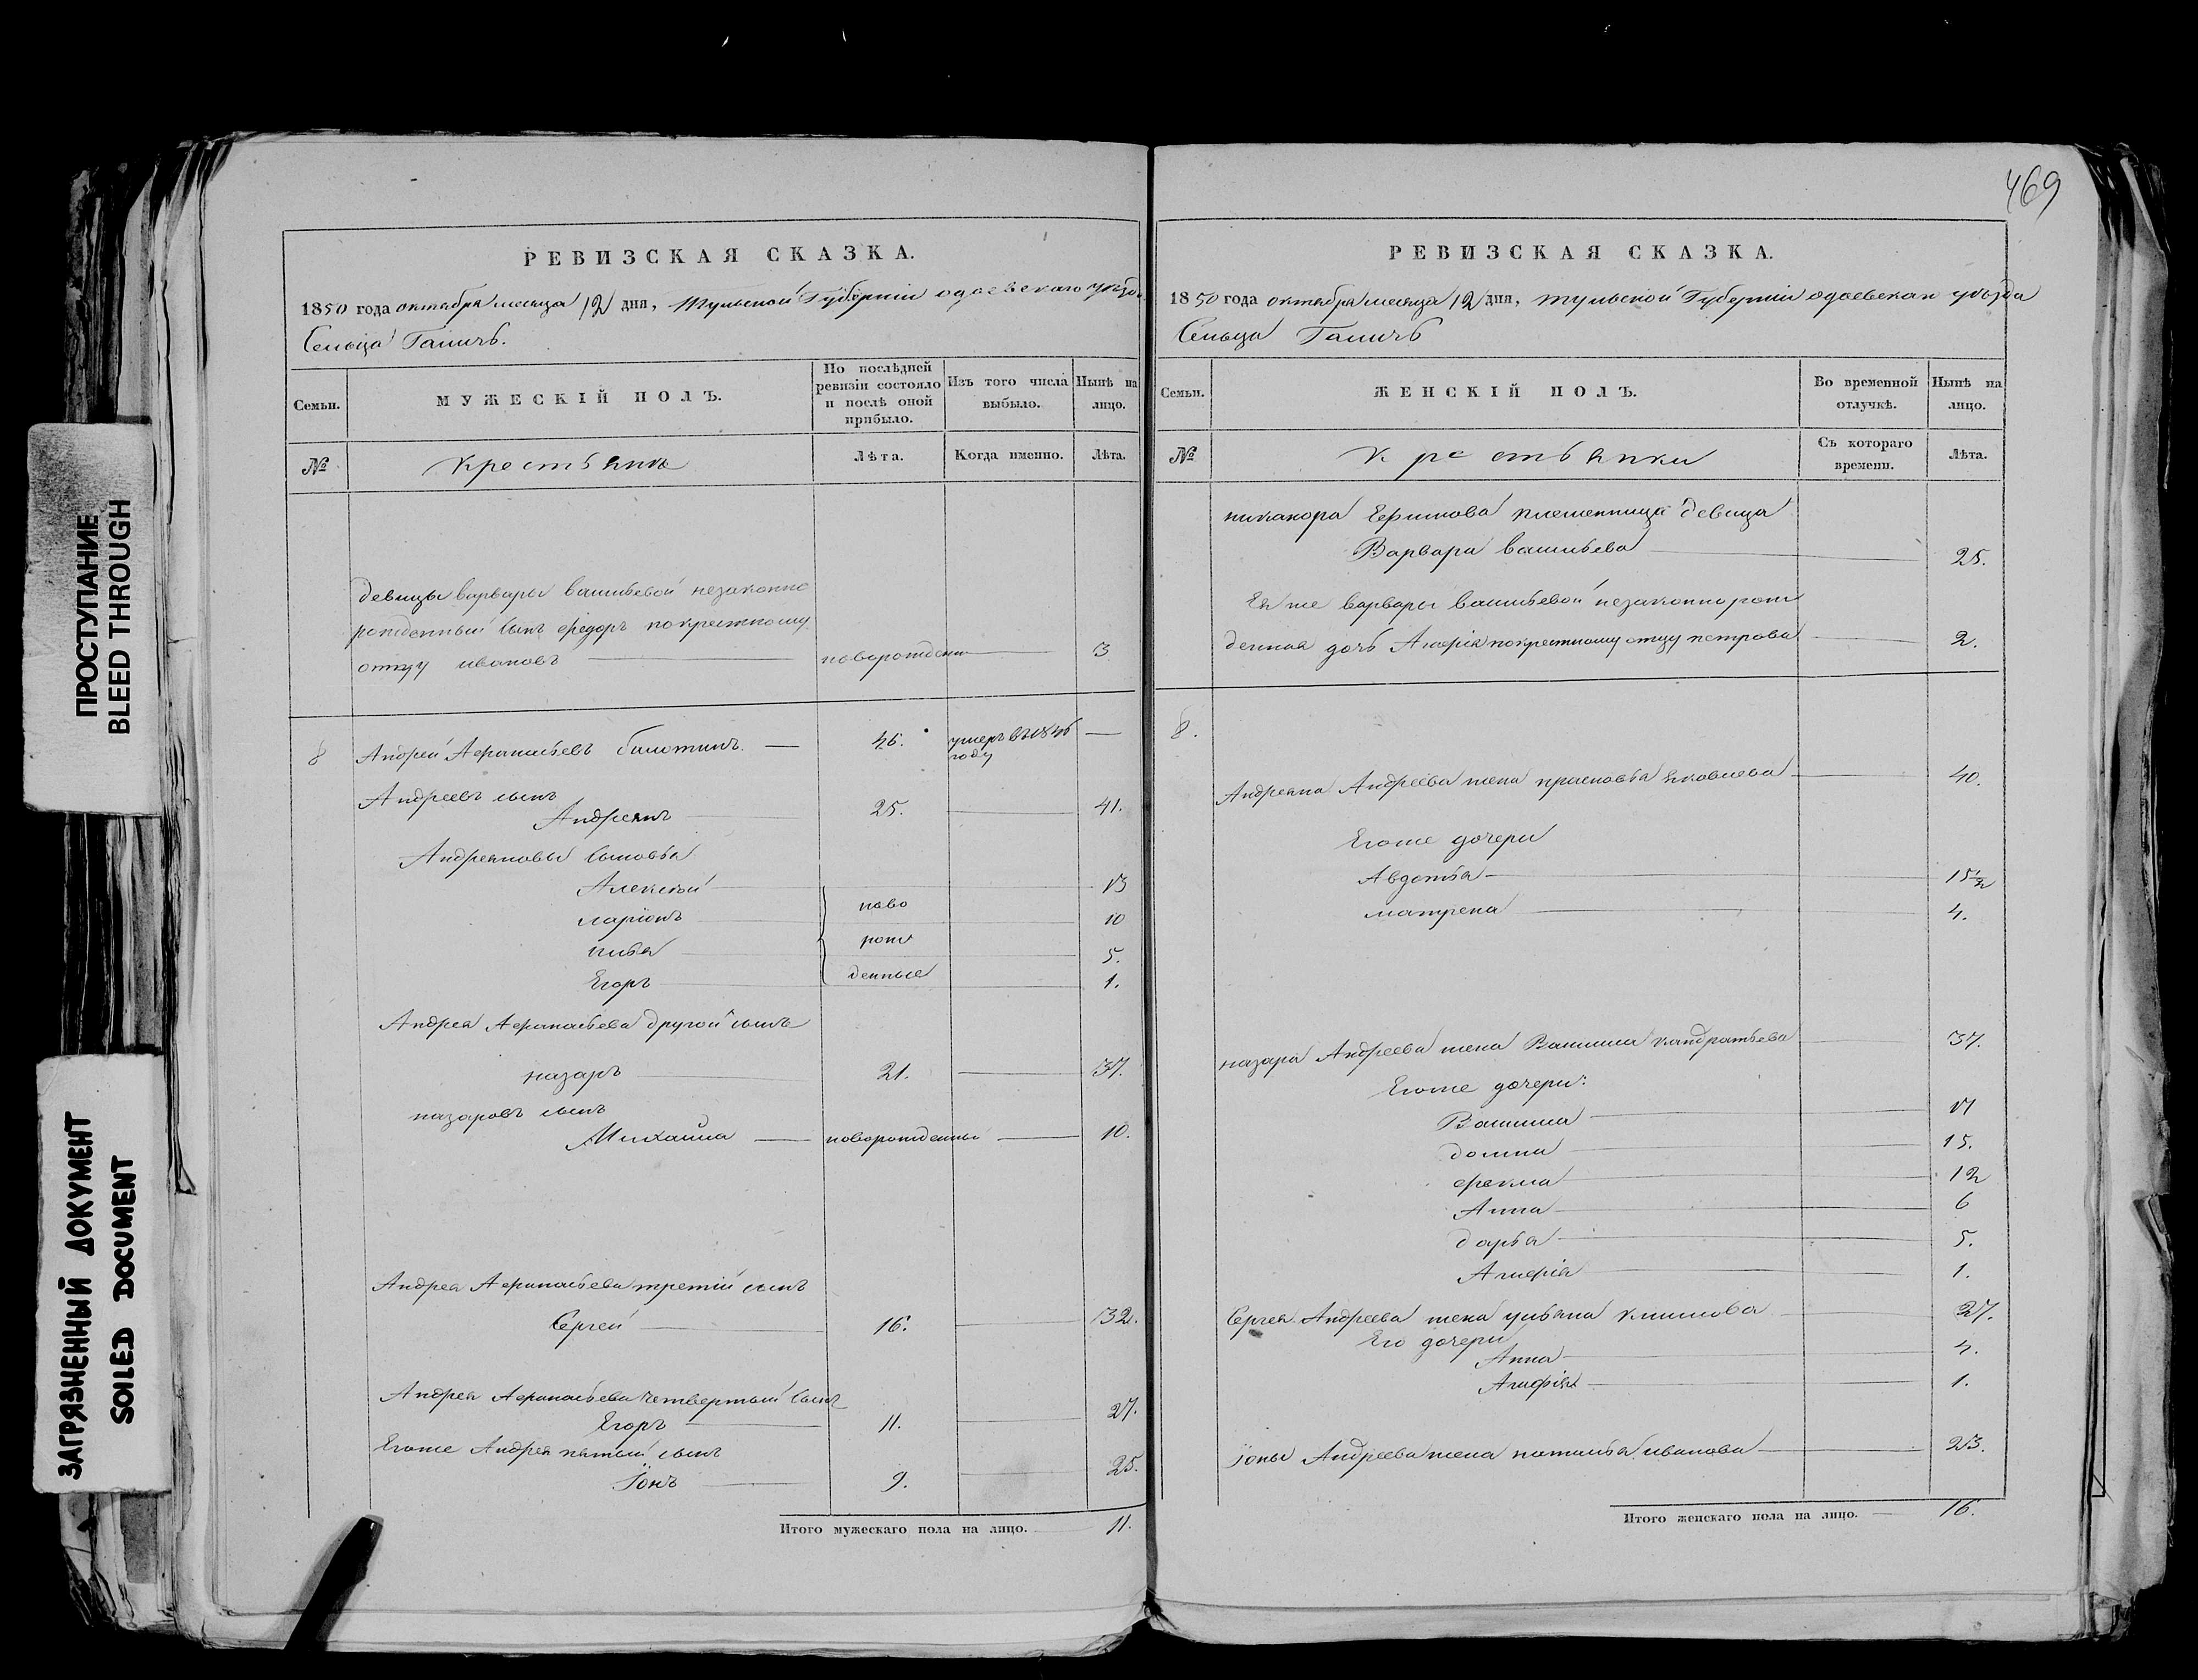 469
ПРОСТУПАНИЕ
BLEED THROUGH
ЗАГРЯЗНЕННЫЙ ДОКУМЕНТ
SOILED DOCUMENT
РЕВИЗСКАЯ СКАЗКА.
1850 года октября месяца 12 дня, Тульской Губернии одоевскаго уезда
Сельца
Семьи.
МУЖЕСКІЙ ПОЛЪ.
По послѣдней ревизіи состояло и послѣ оной прибыло.
Изъ того числа выбыло.
Нынѣ на лицо.
№
крестьяне
Лѣта.
Когда именно.
Лѣта.
девицы варвары васильевой незаконно
рожденный сынъ федоръ покрестному
отцу ивановъ новорожден 3
8 Андрей Афанасьевъ 46. умеръ в 1846 году
Андреевъ сынъ
Андреянъ 25. 41.
Андреяновы сыновья
Алексей 13
ларіонъ ново 10
илья рож 5.
Егоръ денные 1.
Андрея Афанасьева другой сынъ
назаръ 21. 37.
назаровъ сынъ
Михайла новорожденный 10.
Андрея Афанасьева третій сынъ
Сергей 16. 32.
Андрея Афанасьева четвертый сынъ
Егоръ 11. 27.
Егоже Андрея пятый сынъ
Іонъ 9. 25.
Итого мужескаго пола на лицо. 11.
РЕВИЗСКАЯ СКАЗКА.
1850 года октября месяца 12 дня, тульской Губерніи одоевскаго уезда
Сельца
Семьи.
ЖЕНСКІЙ ПОЛЪ.
Во временной отлучкѣ.
Нынѣ на лицо.
№
крестьянки
Съ котораго времени.
Лѣта.
никанора Ефимова племенница девица
Варвара васильева 25.
Ея же варвары васильевой незаконнорож
денная дочь покрестному отцу петрова 2.
8.
Андреяна Андреева жена прасковья яковлева 40.
Егоже дочери
Авдотья 15½
матрена 4.
назара Андреева жена Василиса кандратьева 37.
Егоже дочери:
Василиса 17
домна 15.
фекла 12
Анна 6
дарья 5.
1.
Сергея Андреева жена ульяна климова 27.
Его дочери
Анна 4.
1.
Іоны Андреева жена наталья иванова 23.
Итого женскаго пола на лицо. 16.